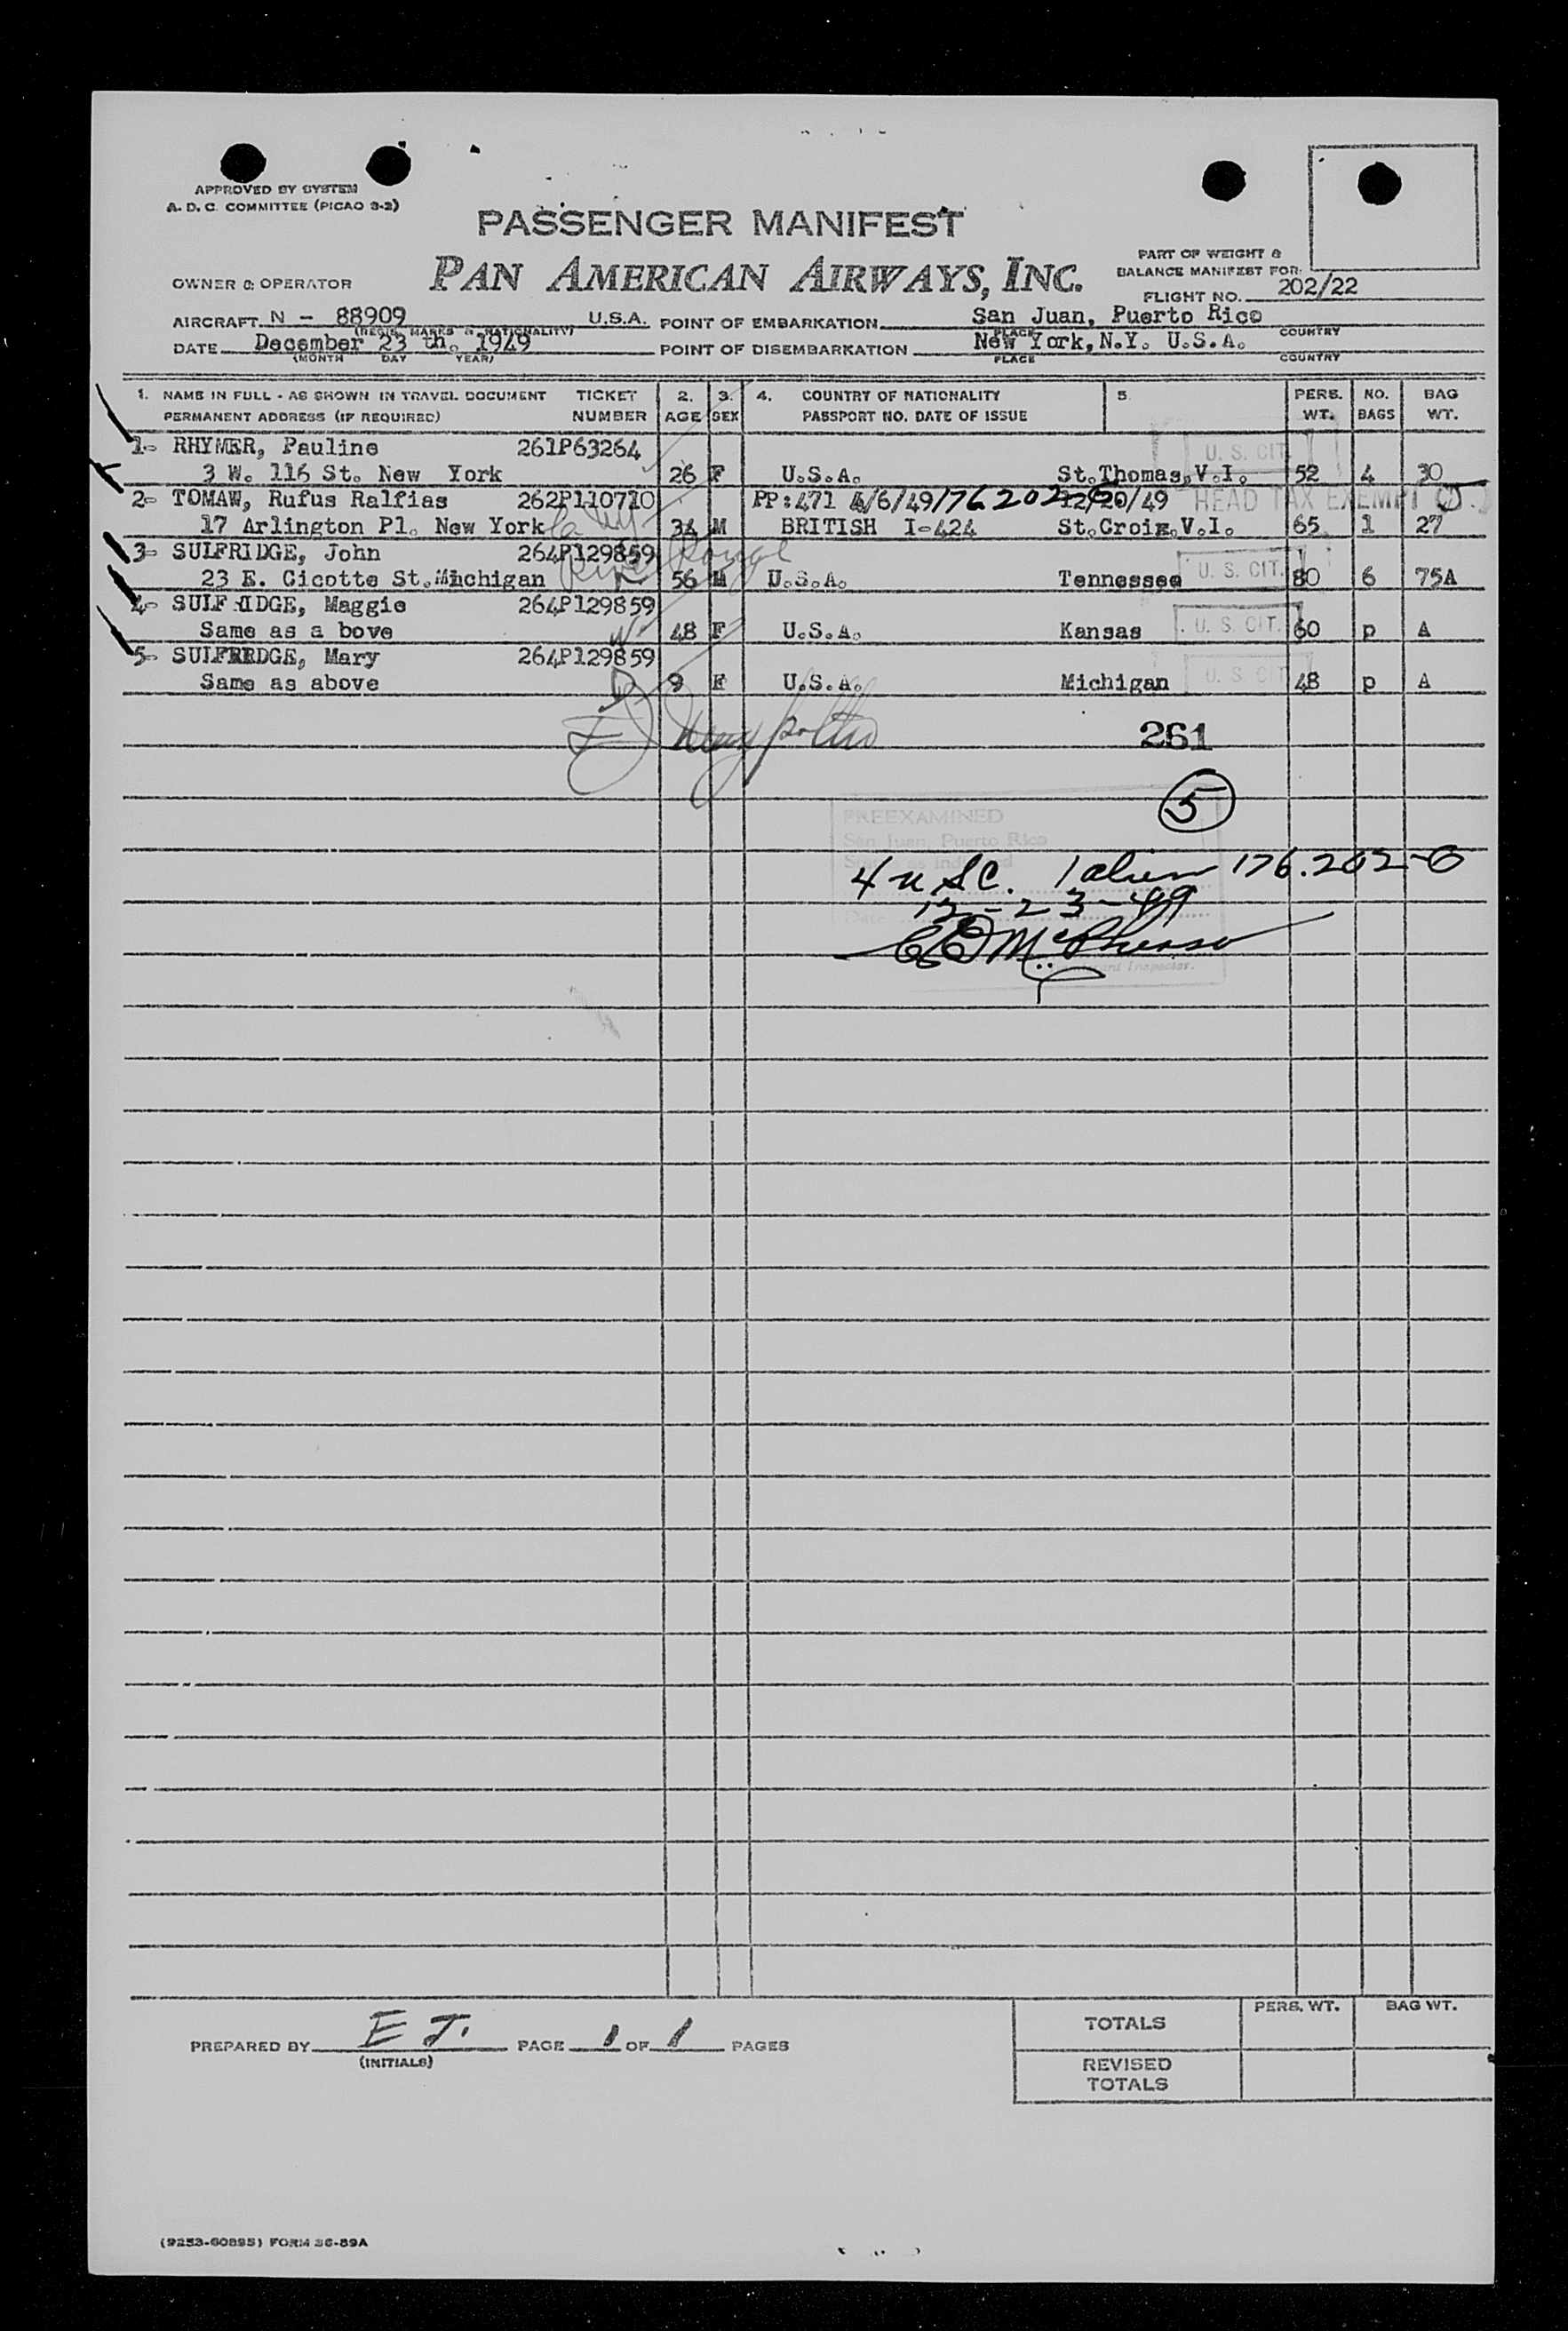 APPROVED BY SYSTEM
A. D. C. COMMITTEE (PICAO 3-2)
PASSENGER MANIFEST
PAN AMERICAN AIRWAYS, INC.
OWNER & OPERATOR
PART OF WEIGHT &
BALANCE MANIFEST FOR:
FLIGHT NO. 202/22
AIRCRAFT N - 88909 U.S.A. POINT OF EMBARKATION San Juan, Puerto Rico
(REGIS. MARKS & NATIONALITY) PLACE COUNTRY
DATE December 23 th. 1949 POINT OF DISEMBARKATION New York, N.Y. U.S.A.
(MONTH DAY YEAR) PLACE COUNTRY
1. NAME IN FULL - AS SHOWN IN TRAVEL DOCUMENT TICKET 2. 3. 4. COUNTRY OF NATIONALITY 5. PERS. NO. BAG
PERMANENT ADDRESS (IF REQUIRED) NUMBER AGE SEX PASSPORT NO. DATE OF ISSUE WT. BAGS WT.
1- RHYMER, Pauline 261P63264 U. S. CIT.
3 W. 116 St. New York 26 F U.S.A. St.Thomas,V.I. 52 4 30
2- TOMAW, Rufus Ralfias 262P110710 PP:471 4/6/49 176202-C 12/20/49 HEAD TAX EXEMPT
17 Arlington Pl. New York 34 M BRITISH I-424 St.Croix,V.I. 65 1 27
3- SULFRIDGE, John 264P129859 River Rouge
23 E. Cicotte St.Michigan 56 M U.S.A. Tennessee U. S. CIT. 80 6 75A
4- SULFRIDGE, Maggie 264P129859
Same as a bove 48 F U.S.A. Kansas U. S. CIT. 60 p A
5- SULFREDGE, Mary 264P129859
Same as above 9 F U.S.A. Michigan U. S. CIT. 48 p A
261
5
PREEXAMINED
San Juan, Puerto Rico
Status as indicated
4 USC. 1 alien 176.202-C
Date 12-23-49
McPherson
Inspector.
PREPARED BY E J. PAGE 1 OF 1 PAGES
(INITIALS)
PERS. WT. BAG WT.
TOTALS
REVISED
TOTALS
(9253-60895) FORM 36-89A